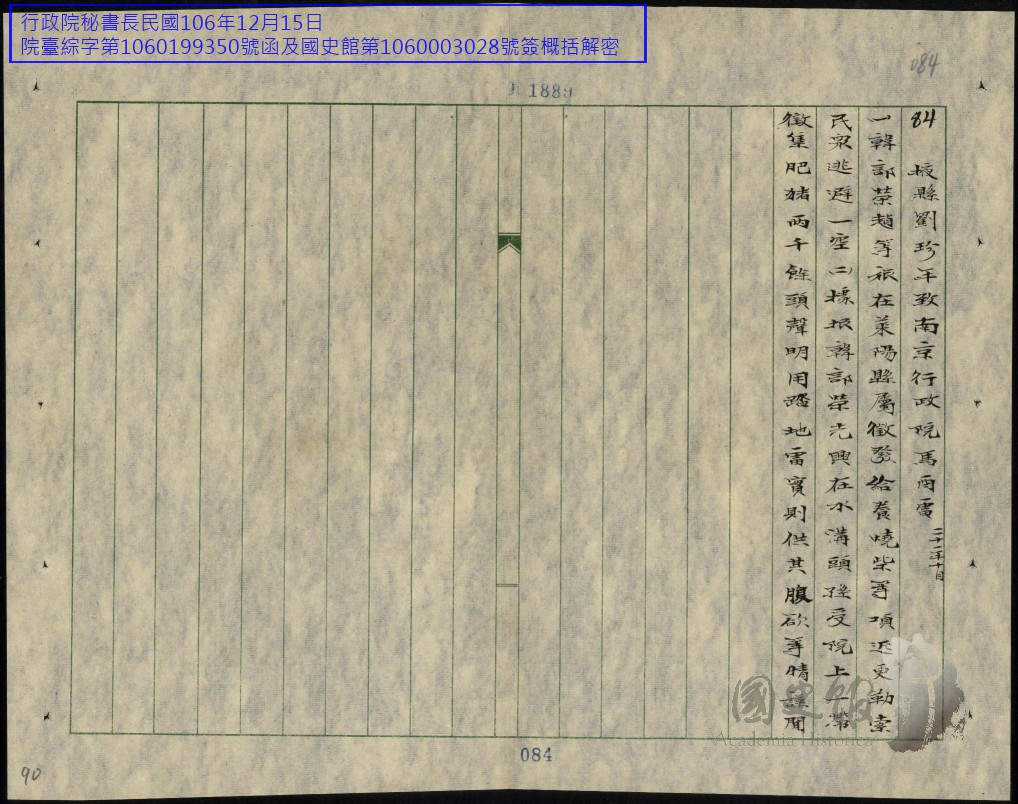 行政院秘書長民國106年12月15日
院臺綜字第1060199350號函及國史館第1060003028號簽概括解密
084
1889
84 掖縣劉珍年致南京行政院馬兩電 二十一年十月
(一)韓部榮趙等旅在萊陽縣屬徵發給養燒柴等項近更勒索
民眾逃避一空(二)據報韓部榮光興在水溝頭孫受院上一帶
徵集肥豬兩千餘頭聲明用踏地雷實則供其腹欲等情謹聞
國史館
Academia Historica
084
90